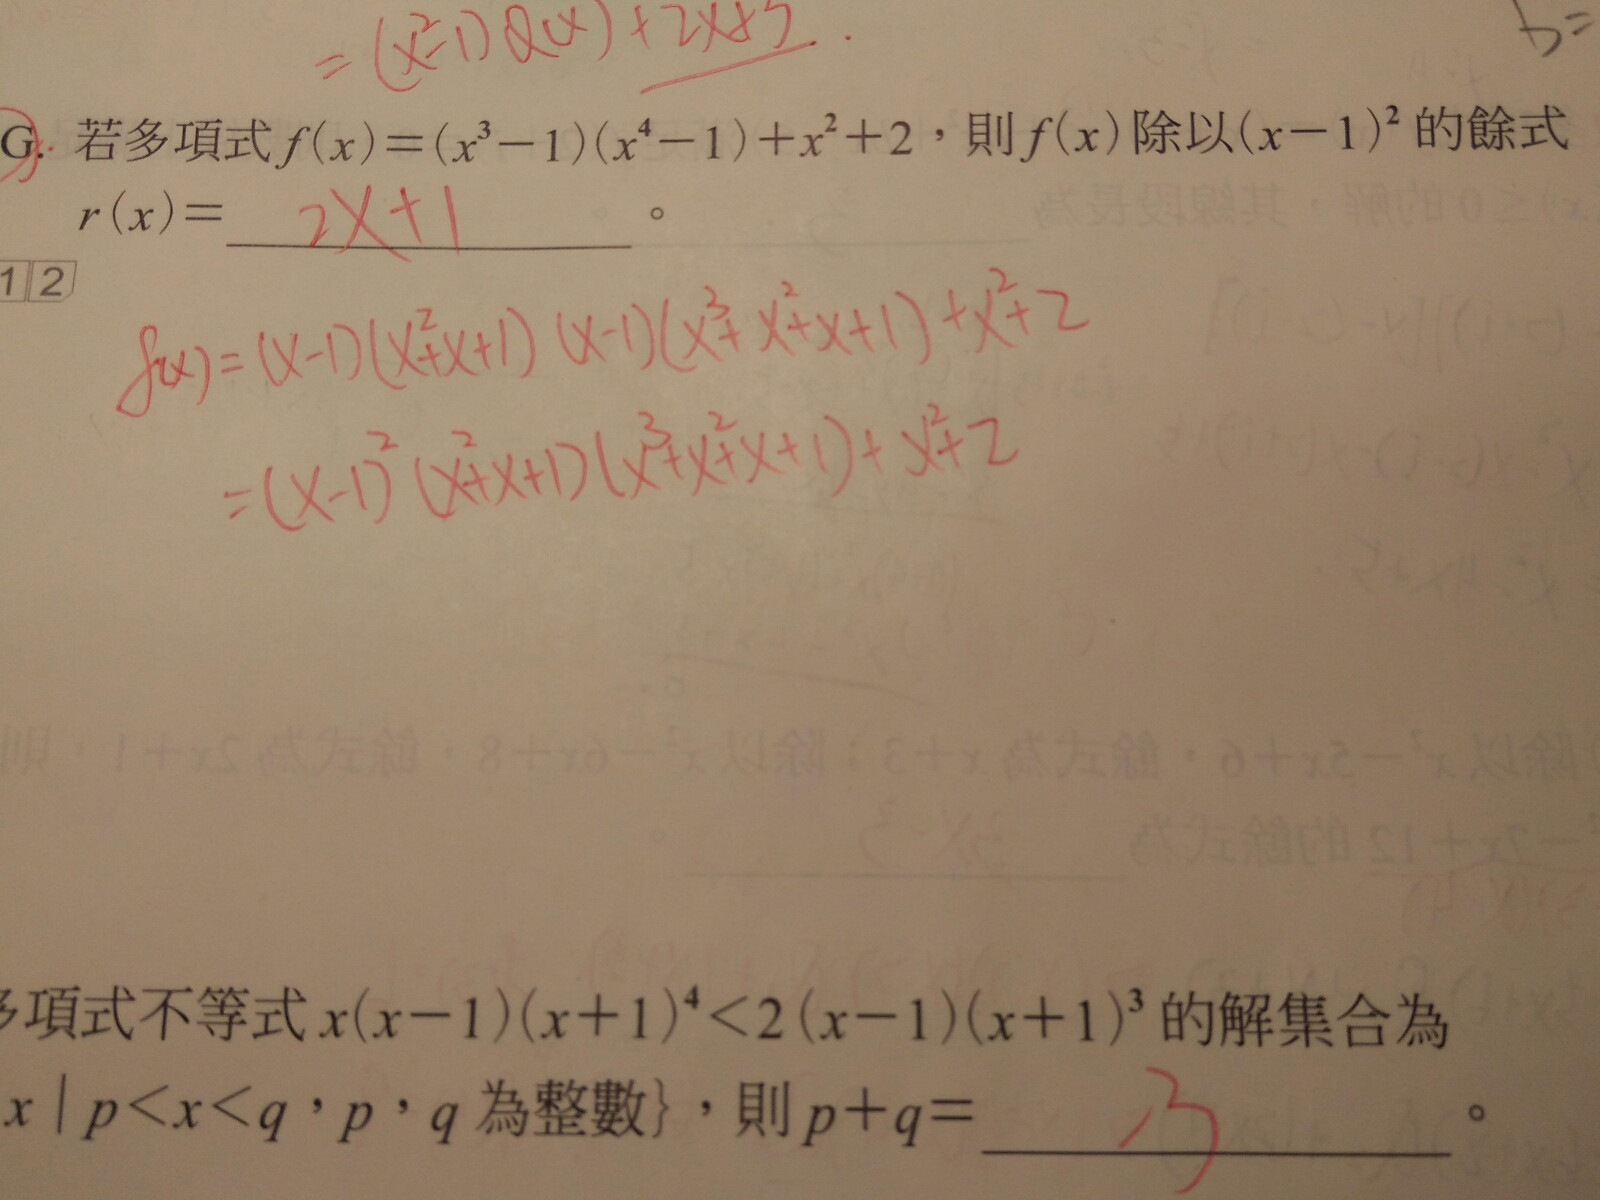 = (x²-1) Q(x) + 2x+3.
b=
G. 若多項式 f(x)=(x³-1)(x⁴-1)+x²+2，則 f(x) 除以 (x-1)² 的餘式
r(x)= 2x+1 。
1 2
f(x) = (x-1)(x²+x+1) (x-1)(x³+x²+x+1) + x²+2
= (x-1)² (x²+x+1)(x³+x²+x+1) + x²+2
項式不等式 x(x-1)(x+1)⁴<2(x-1)(x+1)³ 的解集合為
x | p<x<q，p，q 為整數}，則 p+q=
。